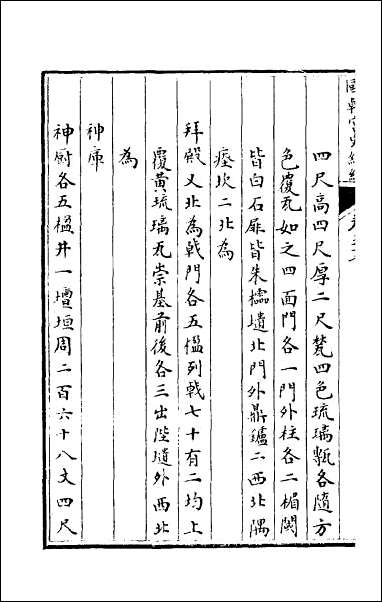 四尺高四尺厚二尺甃四色琉璃甎各隨方
色覆瓦如之四面門各一門外柱各二楣閾
皆白石扉皆朱欞壝北門外鼎鑪二西北隅
瘞坎二北為
拜殿又北為戟門各五楹列戟七十有二均上
覆黃琉璃瓦崇基前後各三出陛壝外西北
為
神庫
神廚各五楹井一壇垣周二百六十八丈四尺